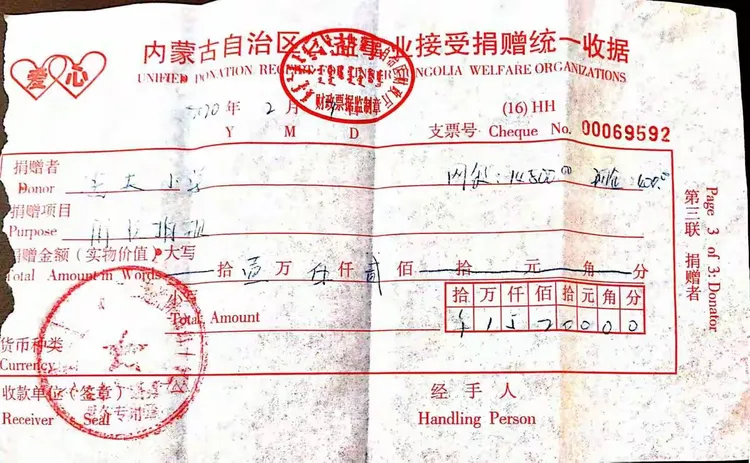 爱心
内蒙古自治区公益事业接受捐赠统一收据
UNIFIED DONATION RECEIPT FOR INNER MONGOLIA WELFARE ORGANIZATIONS
财政票据监制章
(16) HH
2020 年 2 月
Y M D
支票号 Cheque No. 00069592
捐赠者
Donor
捐赠项目
Purpose
捐赠金额（实物价值）大写
Total Amount in Words 拾 壹 万 伍 仟 贰 佰 拾 元 角 分
小写
Total Amount
拾 万 仟 佰 拾 元 角 分
¥ 1 5 2 0 0 0 0
货币种类
Currency
收款单位（签章）
Receiver Seal
经手人
Handling Person
第三联 捐赠者
Page 3 of 3: Donator